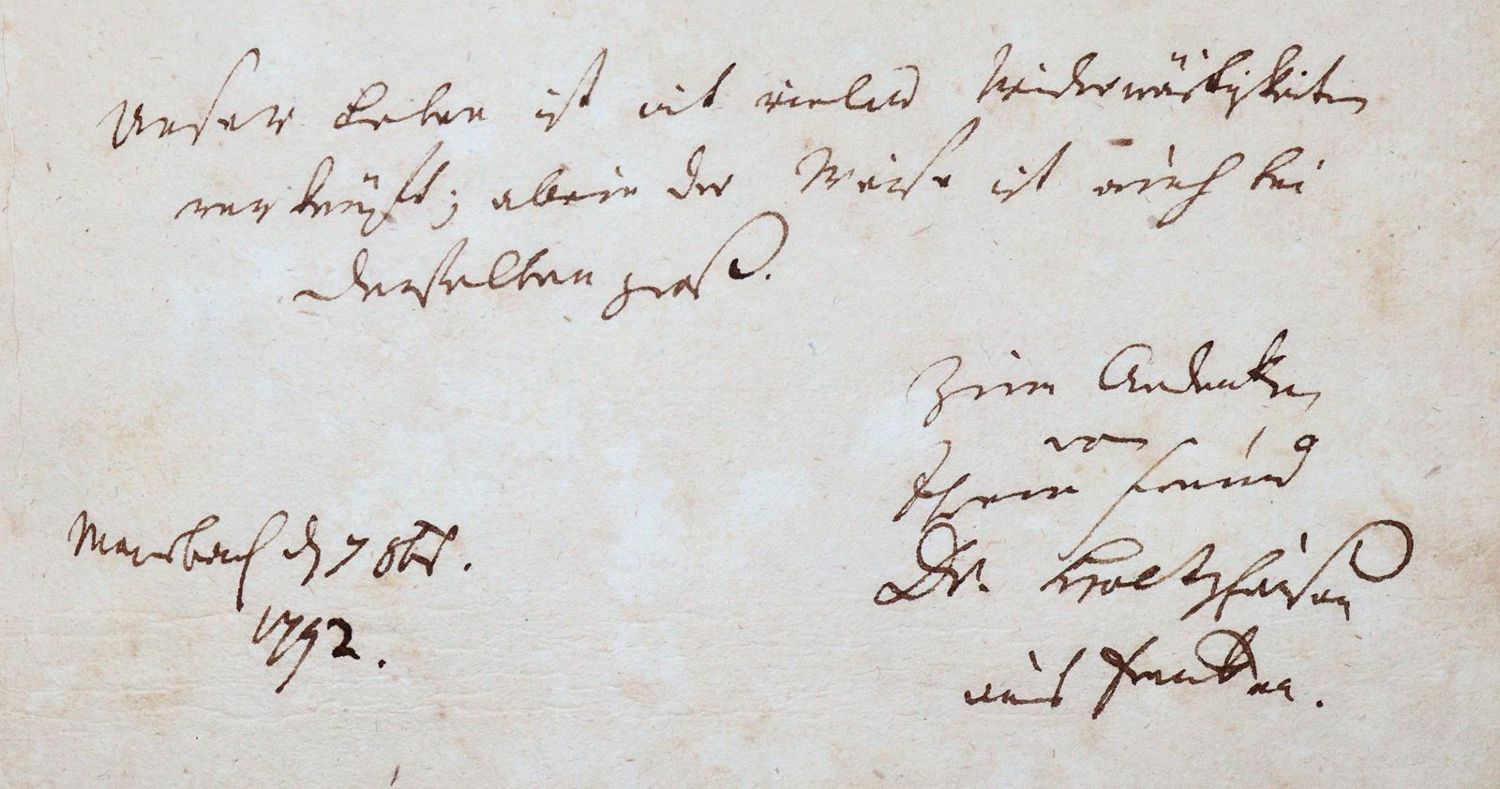 Unser Leben ist mit vielen Widerwärtigkeiten
verknüpft; allein der Weise ist auch bei
denselben groß.
Zum Andenken
von
Ihrem Freund
Dr.
aus Franken.
den 7 8br.
1792.